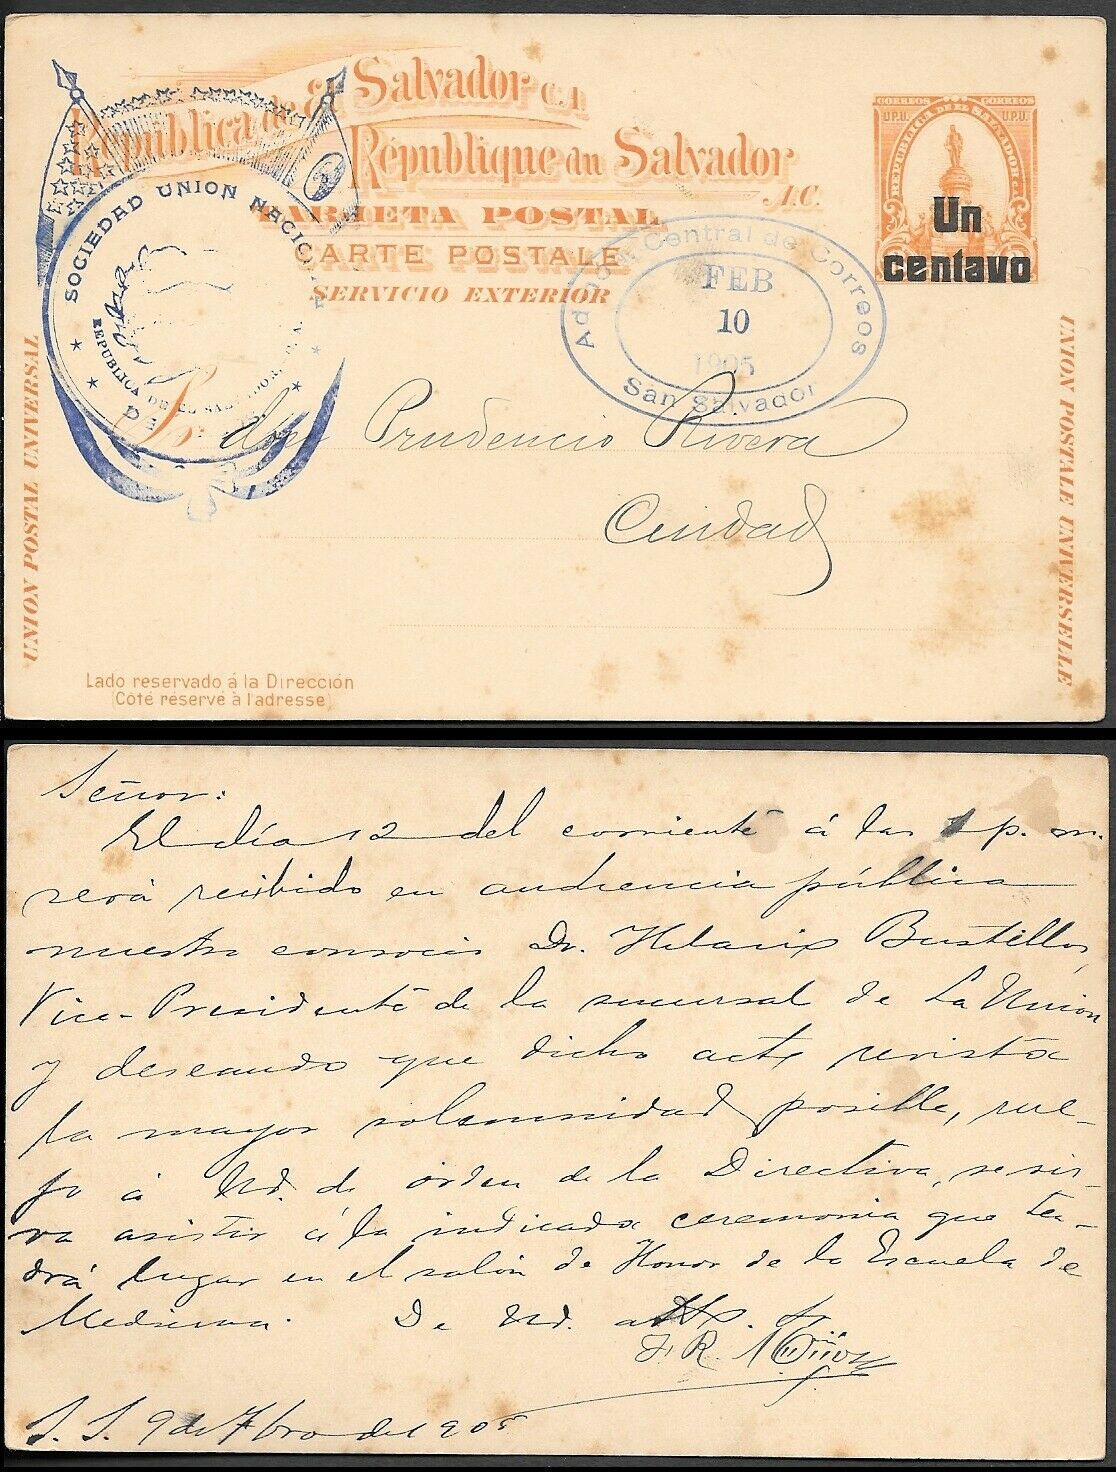 República de El Salvador C.A.
République du Salvador
A.C.
TARJETA POSTAL
CARTE POSTALE
SERVICIO EXTERIOR
CORREOS CORREOS
U.P.U. U.P.U.
REPUBLICA DE EL SALVADOR C.A.
Un
centavo
SOCIEDAD UNION NACIONAL
REPUBLICA DE EL SALVADOR
Central de Correos
FEB
10
1905
San Salvador
UNION POSTAL UNIVERSAL
UNION POSTALE UNIVERSELLE
Sr. don Prudencio Rivera
Ciudad
Lado reservado á la Dirección
(Côté réservé à l'adresse)
Señor:
El día 12 del corriente á las p. m.
será recibido en audiencia pública
nuestro consocio Dr. Hilario Bustillos,
Vice-Presidente de la sucursal de La Union
y deseando que dicho acto revista
la mayor solemnidad posible, rue-
go á Ud. de órden de la Directiva, se sir-
va asistir á la indicada ceremonia que ten-
drá lugar en el salón de Honor de la Escuela de
Medicina. De Ud. atto. S.
F. R.
S. S. 9 de Fbro del 905